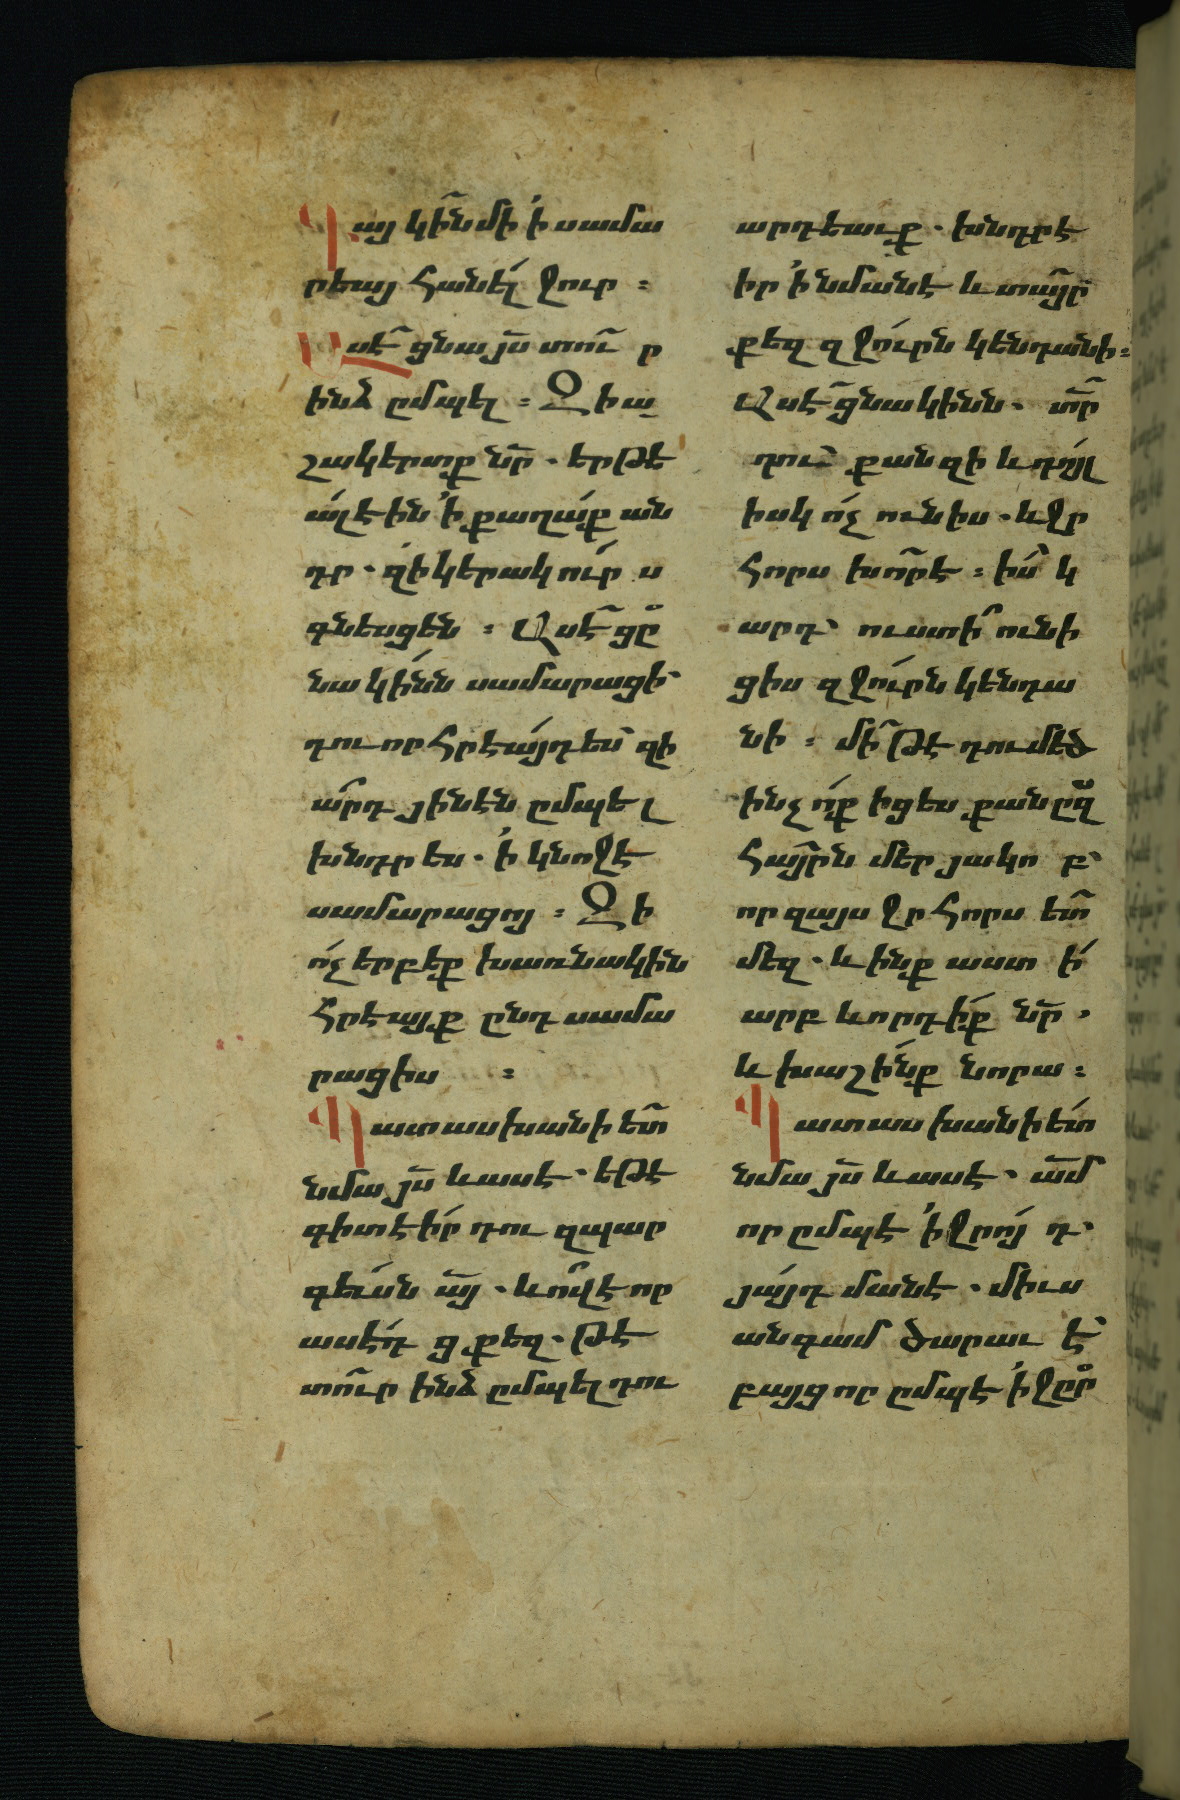 Գայ կին մի ի սամա
րեայ հանել ջուր ։
Ասէ ցնա յս տուր
ինձ ըմպել ։ Զի ա
շակերտք նր . երթե
ալէին ի քաղաք ան
դր . զի կերակուրս
գնեսցեն ։ Ասէ ցը
նա կինն սամարացի՝
դու որ հրեայդ ես՝ զի
արդ յինէն ըմպել
խնդրես . ի կնոջէ
սամարացոյ ։ Զի
ոչ երբեք խառնակին
հրեայք ընդ սամա
րացիս ։
Պատասխանի ետ
նմա յս և ասէ . եթէ
գիտէիր դու զպար
գեւսն այ . և ով է որ
ասէդ ցքեզ . թէ
տուր ինձ ըմպել դու
արդեաւք . խնդրէ
իր ի նմանէ և տայր
քեզ զջուրն կենդանի ։
Ասէ ցնա կինն . տր
դու՝ քանզի և դոյլ
իսկ ոչ ունիս . և ջր
հորս խորէ ։ իսկ
արդ՝ ուստի ունի
ցիս զջուրն կենդա
նի ։ մի թէ դու մեծ
ինչ ոք իցես քան ըզ
հայրն մեր յակոբ՝
որ զայս ջրհորս ետ
մեզ . և ինք աստ ի
արբ և որդիք նր .
և խաշինք նորա ։
Պատասխանի ետ
նմա յս և ասէ . ամ
որ ըմպէ ի ջրոյ դ՝
յայդմանէ . միւս
անգամ ծարաւ է՝
բայց որ ըմպէ ի ջրր